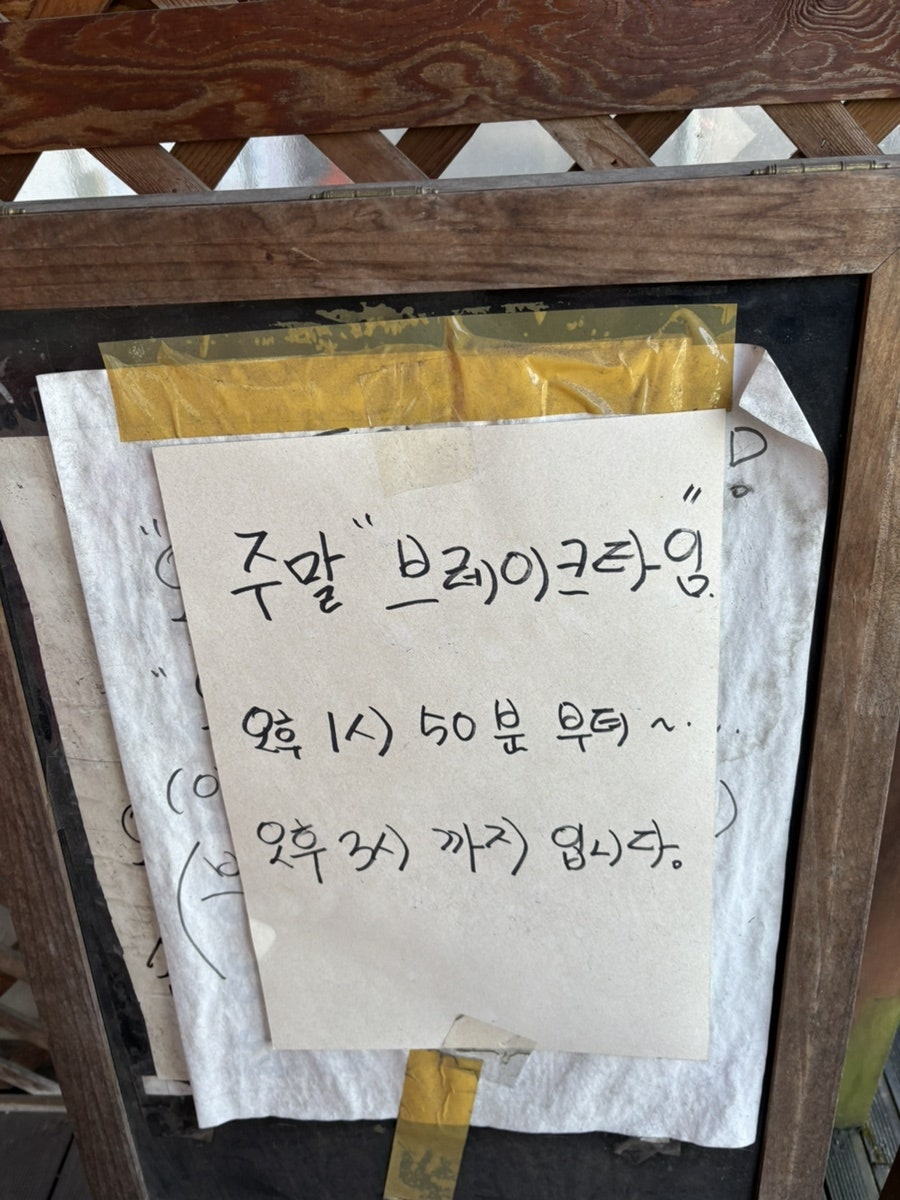 주말 "브레이크타임"
오후 1시 50분 부터 ~..
오후 3시 까지 입니다.